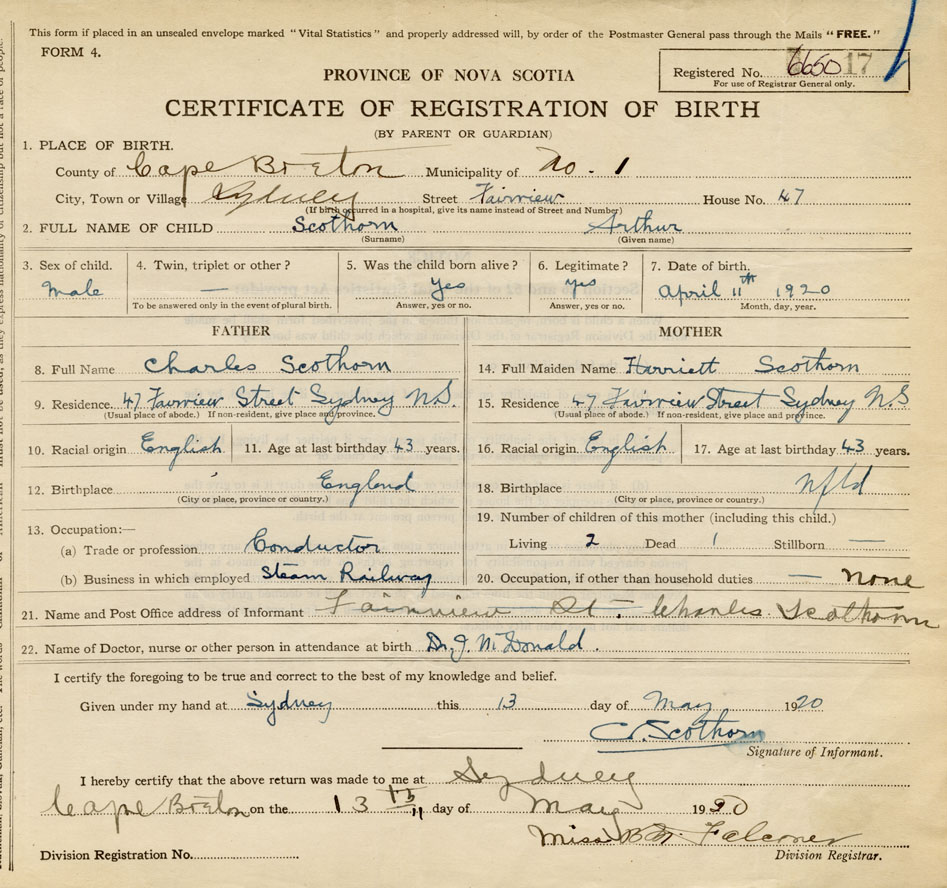 This form if placed in an unsealed envelope marked "Vital Statistics" and properly addressed will, by order of the Postmaster General pass through the Mails "FREE."
FORM 4.
Registered No. 6650 17
For use of Registrar General only.
PROVINCE OF NOVA SCOTIA
CERTIFICATE OF REGISTRATION OF BIRTH
(BY PARENT OR GUARDIAN)
1. PLACE OF BIRTH.
County of Cape Breton Municipality of No. 1
City, Town or Village Sydney Street Fairview House No. 47
(If birth occurred in a hospital, give its name instead of Street and Number)
2. FULL NAME OF CHILD Scothorn Arthur
(Surname) (Given name)
3. Sex of child. 4. Twin, triplet or other? 5. Was the child born alive? 6. Legitimate? 7. Date of birth.
Male — Yes yes April 11th 1920
To be answered only in the event of plural birth. Answer, yes or no. Answer, yes or no. Month, day, year.
FATHER MOTHER
8. Full Name Charles Scothorn 14. Full Maiden Name Harriett Scothorn
9. Residence. 47 Fairview Street Sydney N.S. 15. Residence 47 Fairview Street Sydney N S
(Usual place of abode.) If non-resident, give place and province. (Usual place of abode.) If non-resident, give place and province.
10. Racial origin English 11. Age at last birthday 43 years. 16. Racial origin English 17. Age at last birthday 43 years.
12. Birthplace England 18. Birthplace Nfld
(City or place, province or country.) (City or place, province or country.)
13. Occupation:— 19. Number of children of this mother (including this child.)
(a) Trade or profession Conductor Living 2 Dead 1 Stillborn —
(b) Business in which employed Steam Railway 20. Occupation, if other than household duties — none
21. Name and Post Office address of Informant Fairview St. Charles Scothorn
22. Name of Doctor, nurse or other person in attendance at birth Dr. J. McDonald.
I certify the foregoing to be true and correct to the best of my knowledge and belief.
Given under my hand at Sydney this 13 day of May 1920
C. Scothorn
Signature of Informant.
I hereby certify that the above return was made to me at Sydney
Cape Breton on the 13th day of May 1920
Miss Falconer
Division Registration No. Division Registrar.